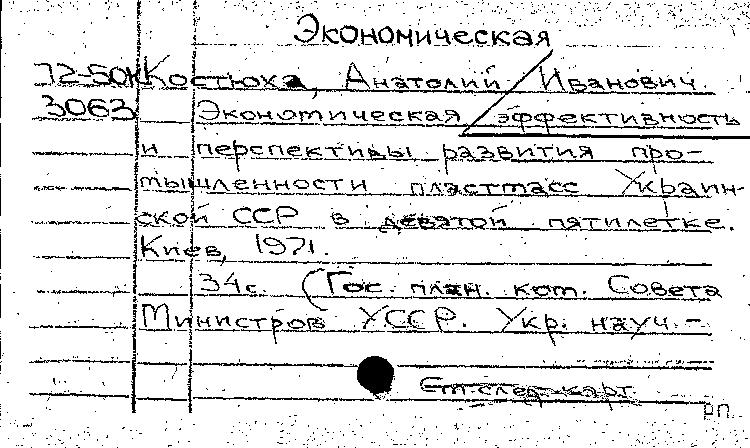 Экономическая
Костюха, Анатолий Иванович.
3063 Экономическая эффективность
и перспективы развития про-
мышленности пластмасс Украин-
ской ССР в девятой пятилетке.
Киев, 1971.
34с. (Гос. план. ком. Совета
Министров УССР. Укр. науч.-
См. след. карт.